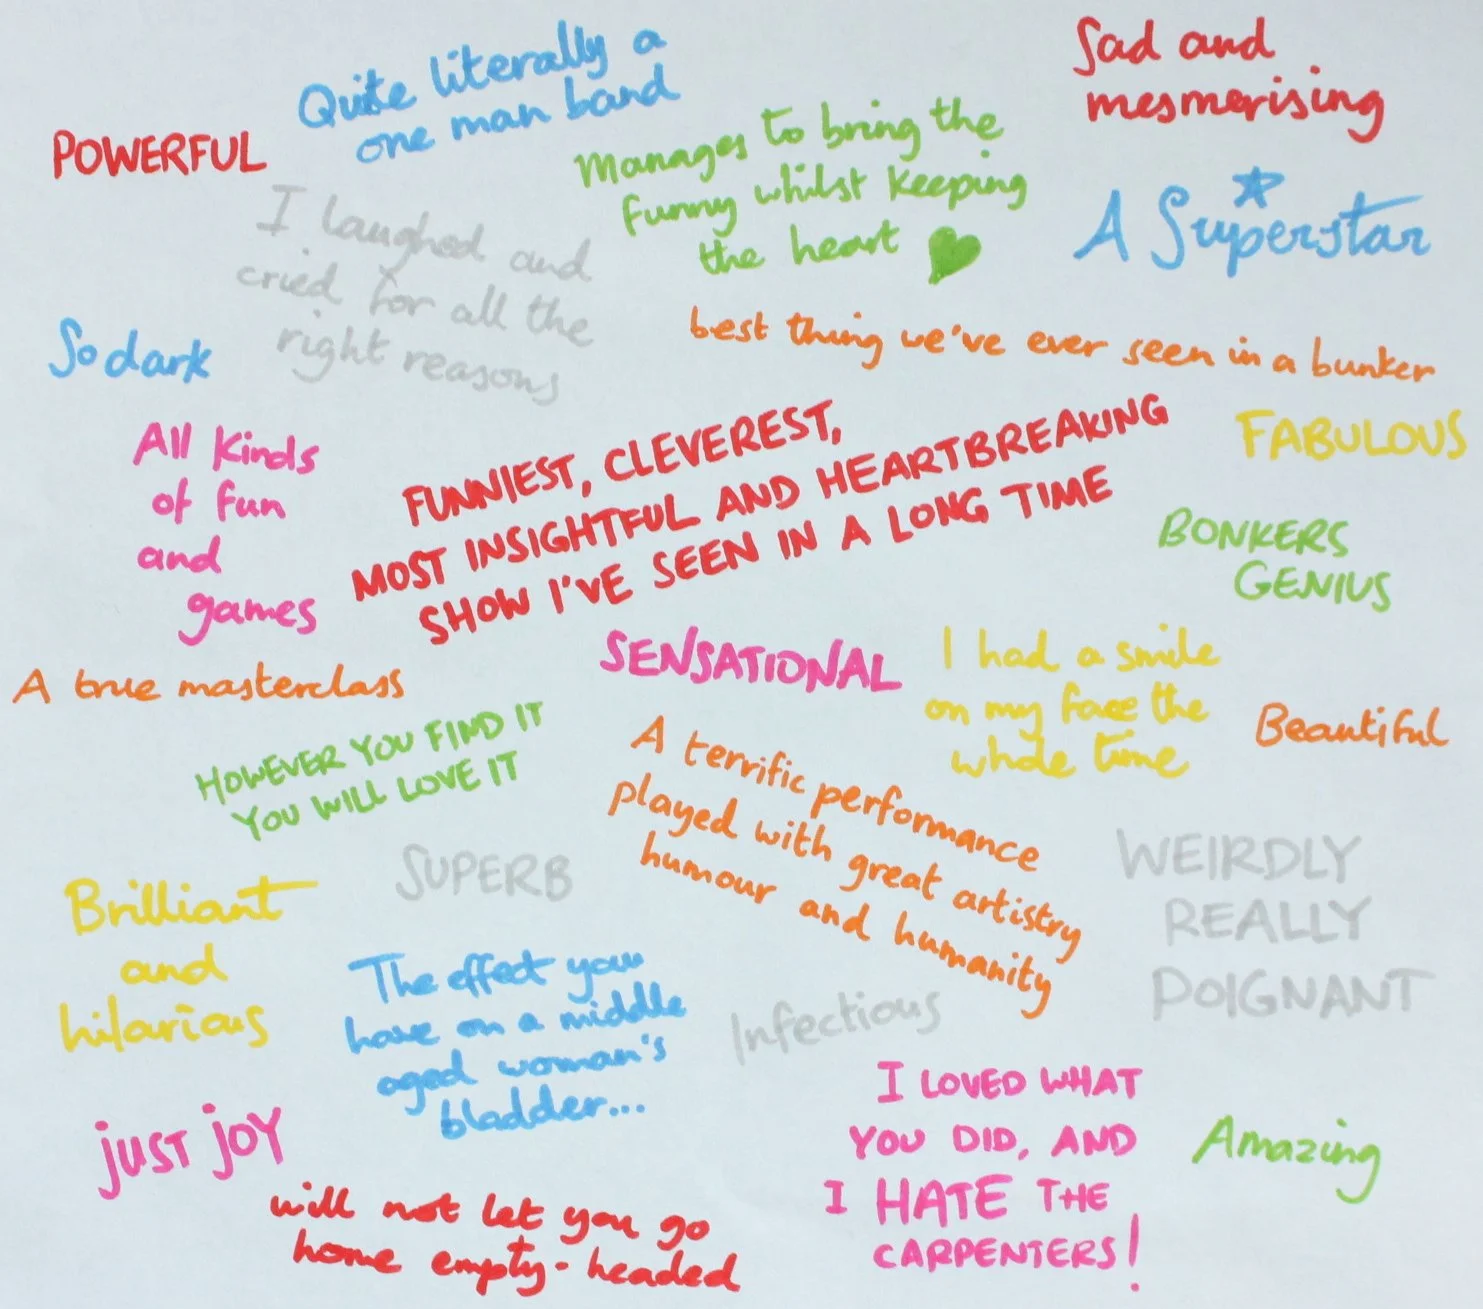 Quite literally a
one man band
Sad and
mesmerising
POWERFUL
Manages to bring the
funny whilst keeping
the heart
I laughed and
cried for all the
right reasons
A Superstar
So dark
best thing we've ever seen in a bunker
All kinds
of fun
and
games
FUNNIEST, CLEVEREST,
MOST INSIGHTFUL AND HEARTBREAKING
SHOW I'VE SEEN IN A LONG TIME
FABULOUS
BONKERS
GENIUS
SENSATIONAL
I had a smile
on my face the
whole time
A true masterclass
Beautiful
HOWEVER YOU FIND IT
YOU WILL LOVE IT
A terrific performance
played with great artistry
humour and humanity
SUPERB
WEIRDLY
REALLY
POIGNANT
Brilliant
and
hilarious
The effect you
have on a middle
aged woman's
bladder...
Infectious
I LOVED WHAT
YOU DID, AND
I HATE THE
CARPENTERS!
just joy
Amazing
will not let you go
home empty-headed